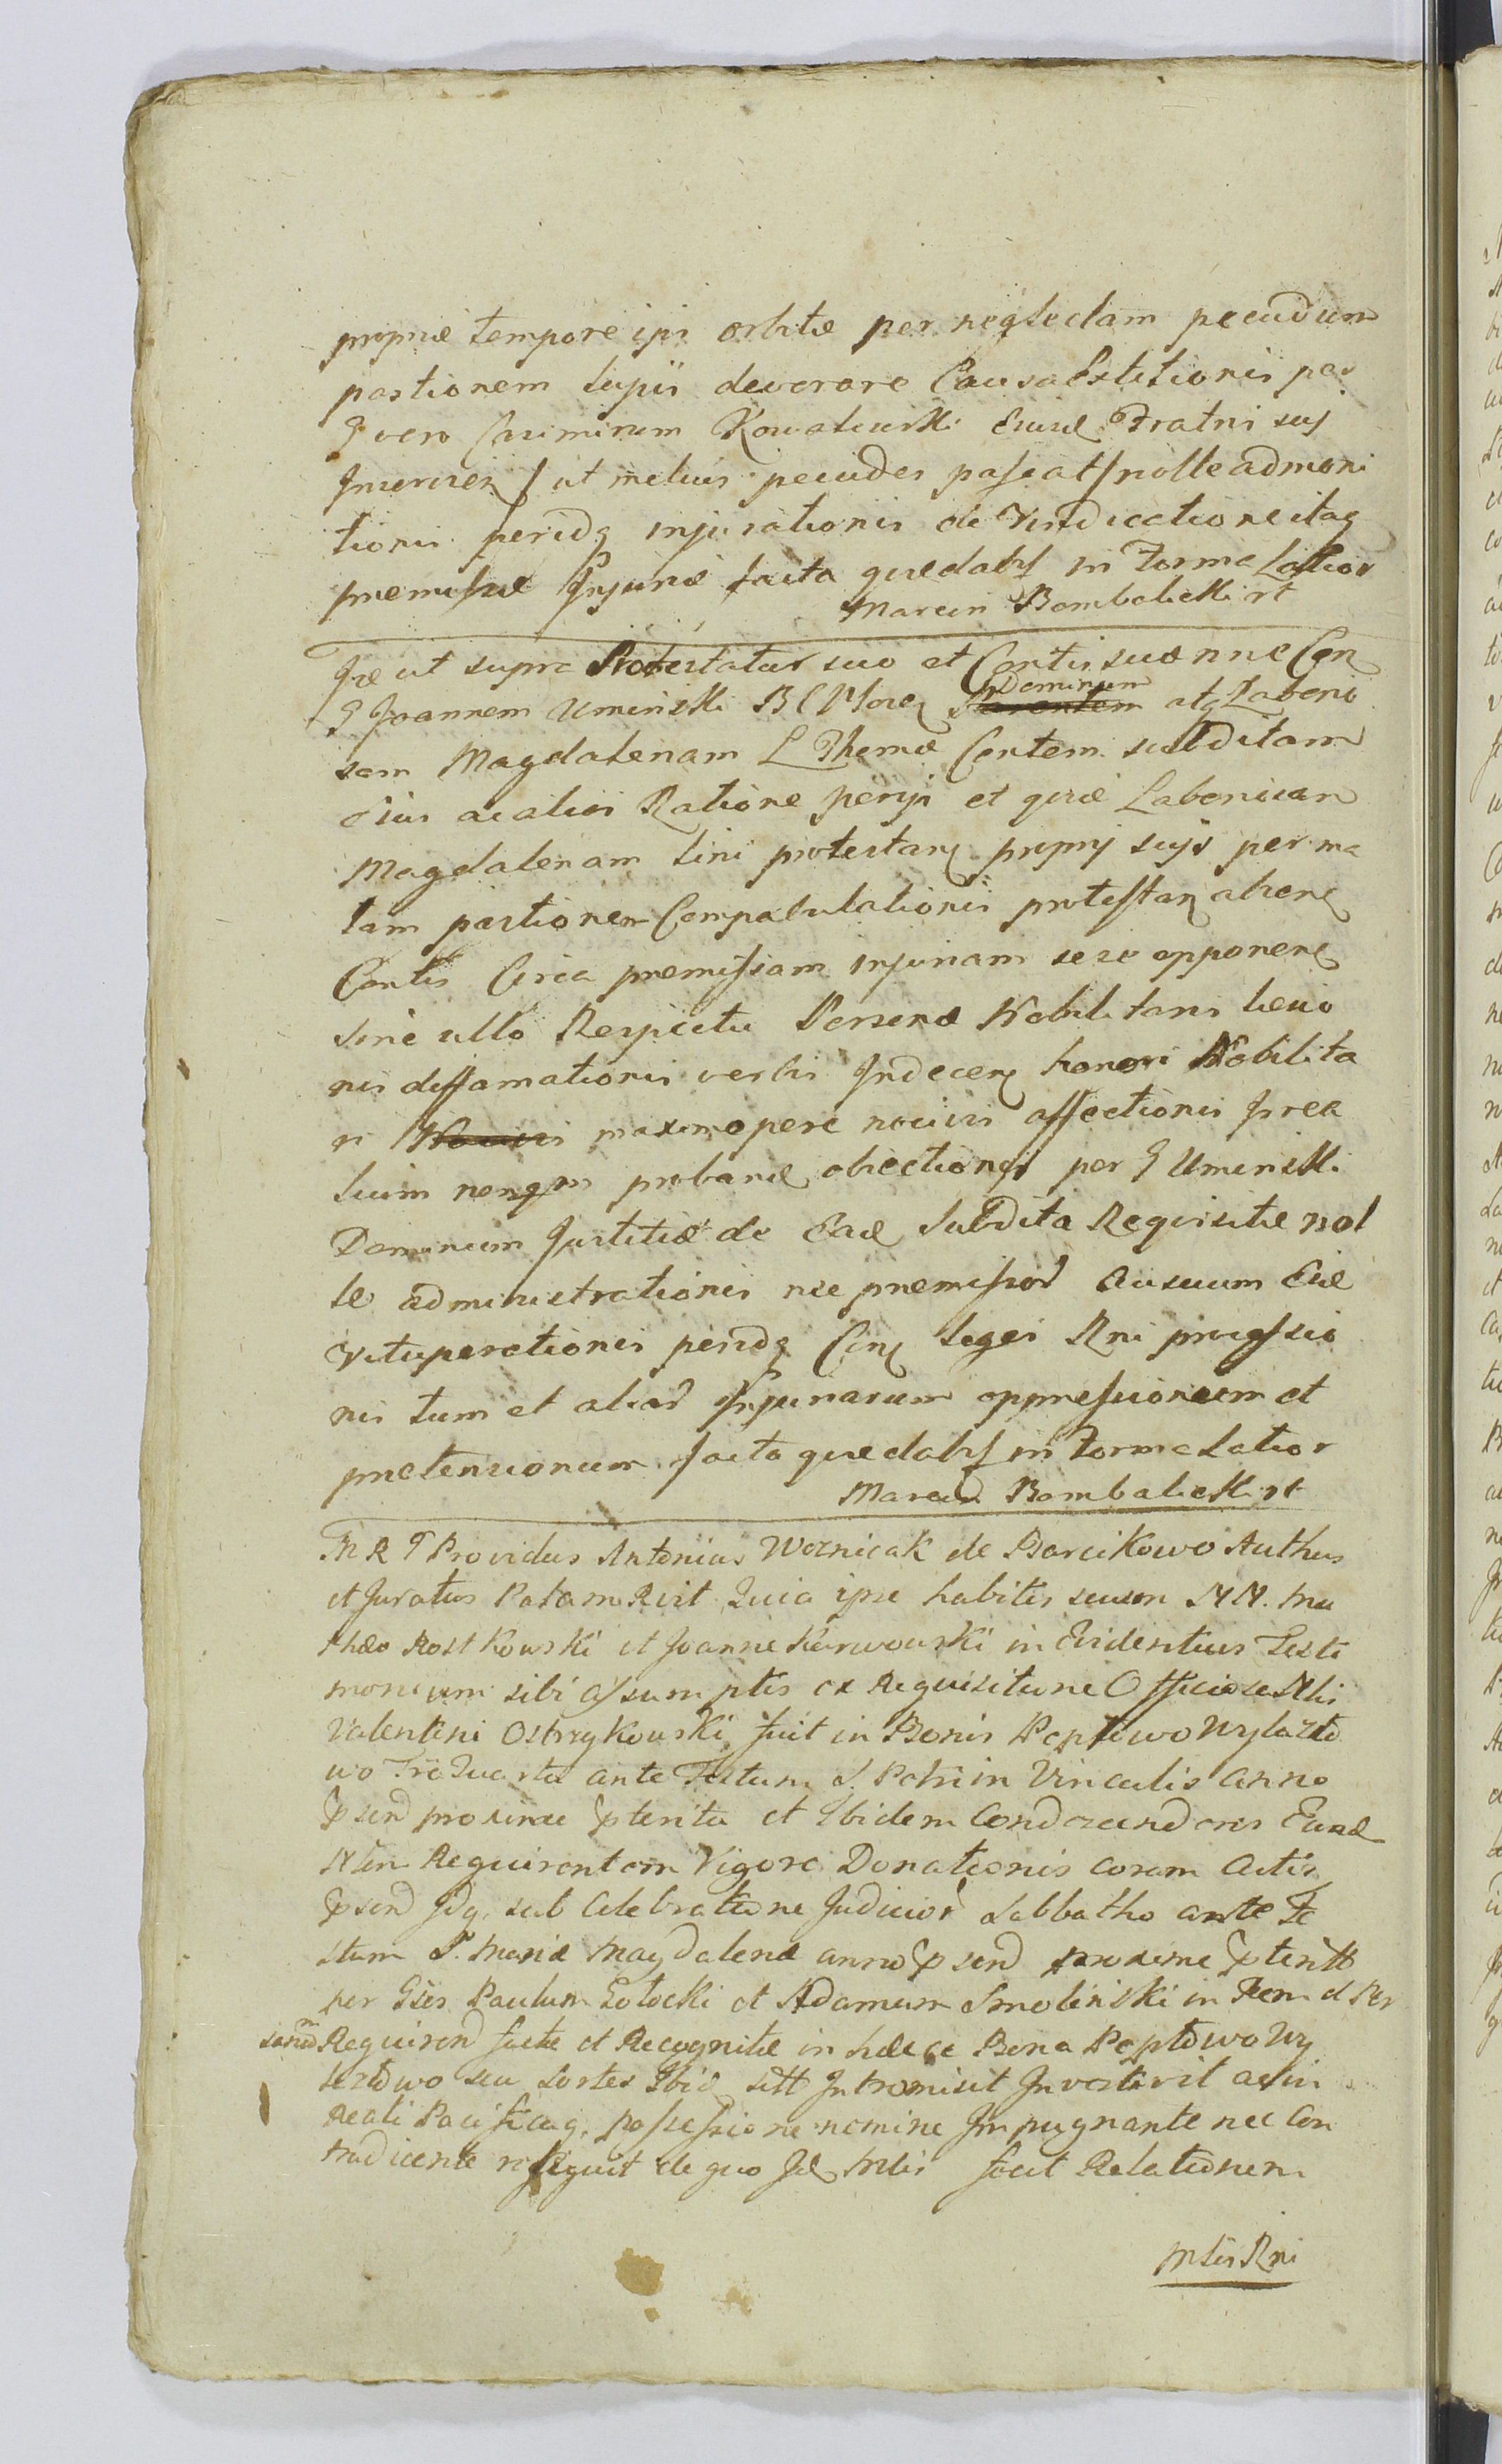 propriæ tempore ipi orbitæ per neglectam pecudum
pastionem lupis devorare Causa Extitionis per
G vero Casimirum Kowalewski Eiusd Fratri suj
Inserviez ut melius pecudes pascat nolle admoni
tionis peridq injuriationis de Vindicatione itaq
præmissæ Injuriæ facta quedabf in Forma Latior
Marcin Bombalicki rt
Iræ ut supra Protestatur suo et Contis suæ nne Con
G Joannem Uminski B C Morez Parentem Dominum atq Laborio
sam Magdalenam L Themæ Contem subditam
eius ac alior Ratione perqr et quæ Laboriosam
Magdalenam lini protestanz proprij sujs per ma
lam pastionem Compalulationis protestanz abiene
Contis Circa premissam injuriam sese opponenz
sine ullo Respectu Personæ Nobilitaris levio
ris diffamationis verbis Indecenz honori Nobilita
ri Nocivis maximopere nocivis affectionis prea
lium nenqm proband obiectionis per G Uminski
Dominum Justitiæ de Ead Subdita Requisitæ nol
le administrationis nec premissor Ausuum Eiæ
Vituperationis peridq Conz leges Rni progressio
nis tum et aliar Injuriarum oppressionum et
prætensionum facta quedabf in Forma Latior
Marcin Bombalicki rt
In R G Providus Antonius Woznicak de Barcikowo Authus
et Juratus Palam Rvit Quia ipse habitis secum NN. Ma
thæo Rostkowski et Joanne Karwowski in Evidentius Testi
monium sibi assumptis ex Requisitione Officiose Nlis
Valentini Ostrzykowski fuit in Bonis Peptowo Wylazło
wo Fria Quarta ante Festum S. Petri in Vinculis anno
Psend proxime Pterita et Ibidem Condescendens Eund
Nlem Requirentem Vigore Donationis coram Actis
Psend Idq. sub Celebratione Judicior Sabbatho ante Fe
stum S. Mariæ Magdalenæ anno Psend proxime Pterito
per Gsos Paulum Gołocki et Adamum Smolinski in Rem et Per
sonam Requiren factæ et Recognitæ in hæcce Bona Peptowo Wy
lazłowo seu Sortes Ibid sitt Intromisit Investivit ac in
Reali Pacificaq. possessione nemine Impugnante nec Con
tradicente reliquit de quo Id Mlis fecit Relationem
Mlis Rni